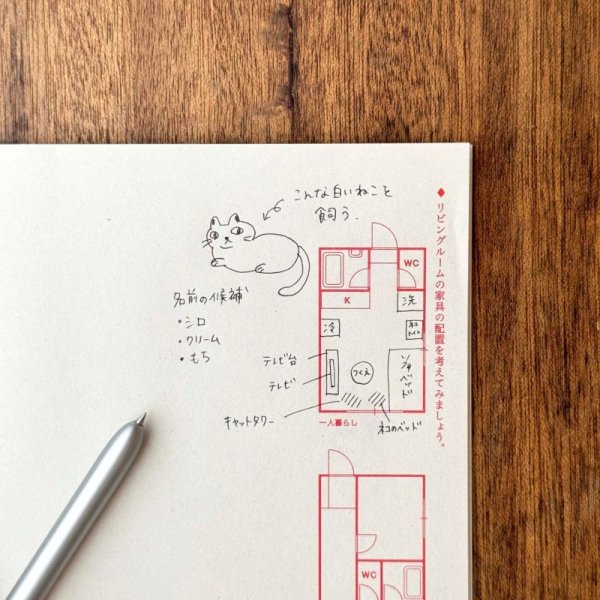 ◆リビングルームの家具の配置を考えてみましょう。
こんな白いねこと
飼う.
名前の候補
・シロ
・クリーム
・もち
WC
K
洗
冷
テレビ台
テレビ
つくえ
ソファベッド
キャットタワー
ネコのベッド
一人暮らし
WC